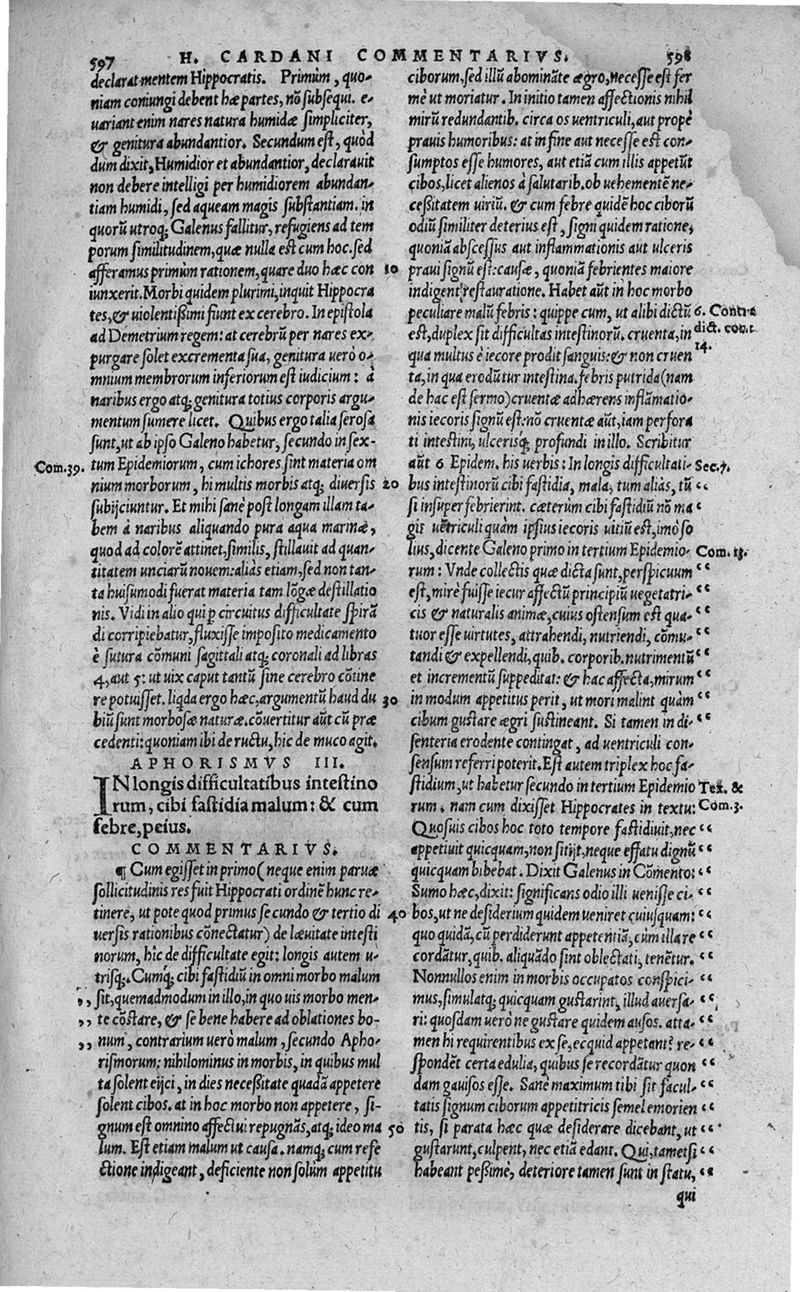 597 H. CARDANI COMMENTARIVS. 598
declarat mentem Hippocratis. Primùm, quo-
niam coniungi debent hæ partes, nõ subsequi. e-
uariant enim nares natura humidæ simpliciter,
& genitura abundantior. Secundum est, quòd
dum dixit, Humidior et abundantior, declarauit
non debere intelligi per humidiorem abundan-
tiam humidi, sed aqueam magis substantiam. in
quorũ utroq; Galenus fallitur, refugiens ad tem
porum similitudinem, quæ nulla est cum hoc. sed
afferamus primum rationem, quare duo hæc con 10
iunxerit. Morbi quidem plurimi, inquit Hippocra
tes, & uiolentißimi fiunt ex cerebro. In epistola
ad Demetrium regem: at cerebrũ per nares ex-
purgare solet excrementa sua, genitura uerò o-
mnium membrorum inferiorum est iudicium: à
naribus ergo atq; genitura totius corporis argu-
mentum sumere licet. Quibus ergo talia serosa
sunt, ut ab ipso Galeno habetur, secundo in sex-
Com. 39. tum Epidemiorum, cum ichores sint materia om
nium morborum, hi multis morbis atq; diuersis 20
subijciuntur. Et mihi sanè post longam illam ta-
bem à naribus aliquando pura aqua marinæ,
quod ad colorẽ attinet, similis, stillauit ad quan-
titatem unciarũ nouem: aliàs etiam, sed non tan-
ta huiusmodi fuerat materia tam lõgæ destillatio
nis. Vidi in alio qui p circuitus difficultate spirã
di corripiebatur, fluxisse imposito medicamento
è sutura cõmuni sagittali atq; coronali ad libras
4, aut 5: ut uix caput tantũ sine cerebro cõtine
re potuisset. liqda ergo hæc, argumentũ haud du 30
biũ sunt morbosæ naturæ. cõuertitur aũt cũ præ
cedenti: quoniam ibi de ructu, hic de muco agit.
APHORISMVS III.
IN longis difficultatibus intestino
rum, cibi fastidia malum: & cum
febre, peius.
COMMENTARIVS.
¶ Cum egisset in primo (neque enim paruæ
sollicitudinis res fuit Hippocrati ordinẽ hunc re-
tinere, ut pote quod primus secundo & tertio di 40
uersis rationibus cõnectatur) de læuitate intesti
norum, hic de difficultate egit: longis autem u-
trisq;. Cumq; cibi fastidiũ in omni morbo malum
,, sit, quemadmodum in illo, in quo uis morbo men-
,, te cõstare, & se bene habere ad oblationes bo-
,, num, contrarium uerò malum, secundo Apho-
rismorum: nihilominus in morbis, in quibus mul
ta solent eijci, in dies necessitate quadã appetere
solent cibos. at in hoc morbo non appetere, si-
gnum est omnino affectui repugnãs, atq; ideo ma 50
lum. Est etiam malum ut causa. namq; cum refe
ctione indigeant, deficiente non solum appetitu
ciborum, sed illũ abominãte ægro, necesse est fer
mè ut moriatur. In initio tamen affectionis nihil
mirũ redundantib. circa os uentriculi, aut propè
prauis humoribus: at in fine aut necesse est con-
sumptos esse humores, aut etiã cum illis appetũt
cibos, licet alienos à salutarib. ob uehementẽ ne-
ceßitatem uiriũ. & cum febre quidẽ hoc ciborũ
odiũ similiter deterius est, signi quidem ratione,
quoniã abscessus aut inflammationis aut ulceris
praui signũ est: causæ, quoniã febrientes maiore
indigent restauratione. Habet aũt in hoc morbo
peculiare malũ febris: quippe cum, ut alibi dictũ 6. Contra
est, duplex sit difficultas intestinorũ. cruenta, in dict. con. t
14.
qua multus è iecore prodit sanguis: & non cruen
ta, in qua erodũtur intestina. febris putrida (nam
de hac est sermo) cruentæ adhærens inflãmatio-
nis iecoris signũ est: nõ cruentæ aũt, iam perfora
ti intestini, ulcerisq; profundi in illo. Scribitur
aũt 6 Epidem. his uerbis: In longis difficultati- Sec. 7.
bus intestinorũ cibi fastidia, mala, tum aliàs, tũ “
si insuper febrierint. cæterum cibi fastidiũ nõ ma “
gis uẽtriculi quàm ipsius iecoris uitiũ est, imò so
lius, dicente Galeno primo in tertium Epidemio- Com. 13.
rum: Vnde collectis quæ dicta sunt, perspicuum “
est, mirè fuisse iecur affectũ principiũ uegetatri- “
cis & naturalis animæ, cuius ostensum est qua- “
tuor esse uirtutes, attrahendi, nutriendi, cõmu- “
tandi & expellendi, quib. corporib. nutrimentũ “
et incrementũ suppeditat: & hac affecta, mirum “
in modum appetitus perit, ut mori malint quàm “
cibum gustare ægri sustineant. Si tamen in di- “
senteria erodente contingat, ad uentriculi con-
sensum referri poterit. Est autem triplex hoc fa-
stidium, ut habetur secundo in tertium Epidemio Tex. &
rum. nam cum dixisset Hippocrates in textu: Com. 3.
Quosuis cibos hoc toto tempore fastidiuit, nec “
appetiuit quicquam, non sitijt, neque effatu dignũ “
quicquam bibebat. Dixit Galenus in Cõmento: “
Sumo hæc, dixit: significans odio illi uenisse ci- “
bos, ut ne desiderium quidem ueniret cuiusquam: “
quo quidã, cũ perdiderunt appetentiã, cum illa re “
cordãtur, quib. aliquãdo sint oblectati, tenẽtur. “
Nonnullos enim in morbis occupatos conspici- “
mus, simulatq; quicquam gustarint, illud auersa- “
ri: quosdam uerò ne gustare quidem ausos. atta- “
men hi requirentibus ex se, ecquid appetant? re- “
spondẽt certa edulia, quibus se recordãtur quon “
dam gauisos esse. Sanè maximum tibi sit facul- “
tatis signum ciborum appetitricis semel emorien “
tis, si parata hæc quæ desiderare dicebant, ut “
gustarunt, culpent, nec etiã edant. Qui, tametsi “
habeant peßimè, deteriore tamen sunt in statu, “
qui